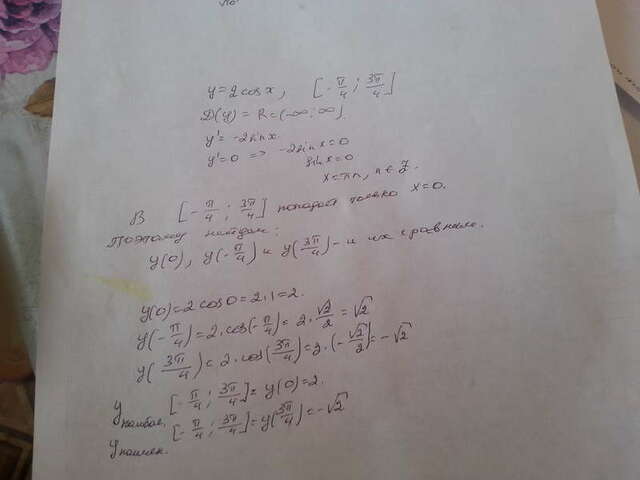 y = 2 cos x, [-π/4 ; 3π/4]
D(y) = R = (-∞; ∞).
y' = -2sin x
y' = 0 => -2sin x = 0
sin x = 0
x = πn, n ∈ Z.
В [-π/4 ; 3π/4] попадает только x = 0.
Поэтому найдем:
y(0), y(-π/4) и y(3π/4) - и их сравним.
y(0) = 2 cos 0 = 2·1 = 2.
y(-π/4) = 2·cos(-π/4) = 2·√2/2 = √2
y(3π/4) = 2·cos(3π/4) = 2·(-√2/2) = -√2
y наибол. [-π/4 ; 3π/4] = y(0) = 2.
y наимен. [-π/4 ; 3π/4] = y(3π/4) = -√2